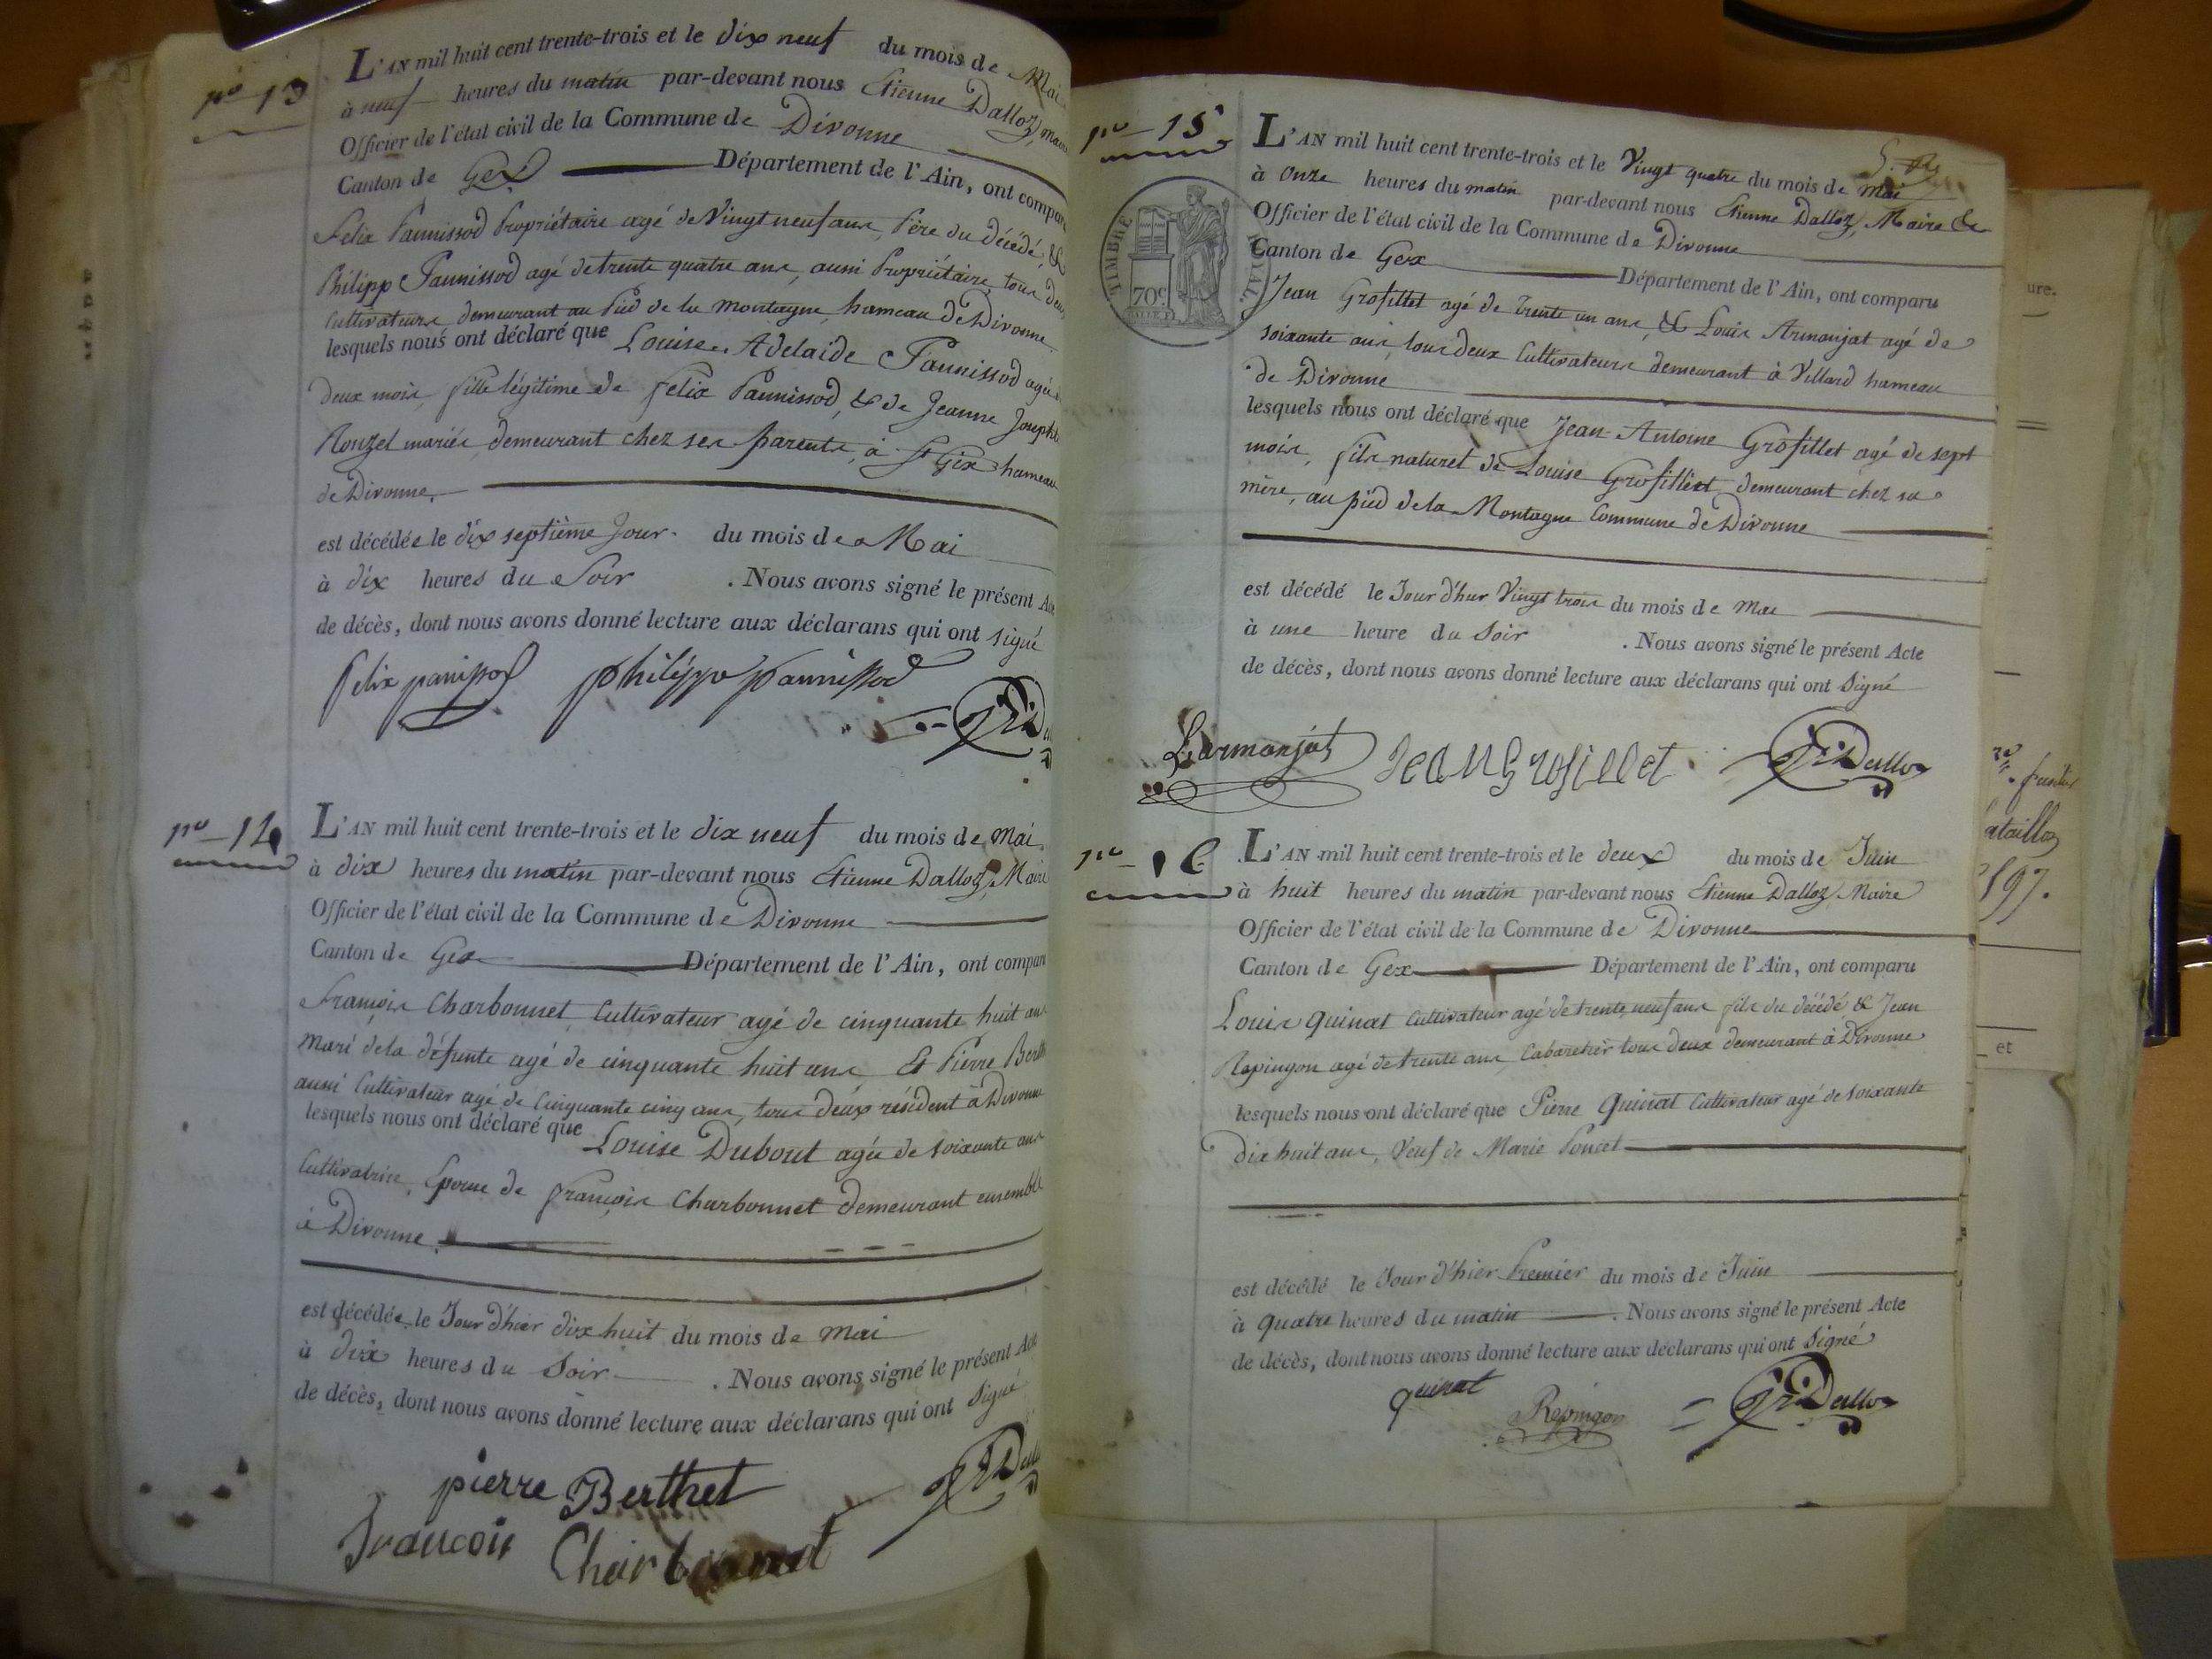 nº 13
L'AN mil huit cent trente-trois et le dix neuf du mois de Mai
à neuf heures du matin par-devant nous Etienne Dalloz, Maire
Officier de l'état civil de la Commune de Divonne
Canton de Gex Département de l'Ain, ont compar
Felix Pannissod Propriétaire agé de Vingt neuf ans, Père du décédé, &
Philippe Pannissod agé de trente quatre ans, aussi Propriétaire, tous deux
Cultivateurs demeurant au Pied de la Montagne, hameau de Divonne.
lesquels nous ont déclaré que Louise Adelaide Pannissod agée de
deux mois, fille légitime de Felix Pannissod, & de Jeanne Josephte
Rouzet mariés, demeurant chez ses parents, à St Gix hameau
de Divonne.
est décédée le dix septième Jour du mois de Mai
à dix heures du Soir . Nous avons signé le présent Acte
de décès, dont nous avons donné lecture aux déclarans qui ont signé
felix panissod philippe pannissod
nº 14
L'AN mil huit cent trente-trois et le dix neuf du mois de Mai
à dix heures du matin par-devant nous Etienne Dalloz, Maire
Officier de l'état civil de la Commune de Divonne
Canton de Gex Département de l'Ain, ont compar
François Charbonnet Cultivateur agé de cinquante huit ans
Mari de la défunte agé de cinquante huit ans Et Pierre Berth
aussi Cultivateur agé de Cinquante cinq ans, tous deux résident à Divonne
lesquels nous ont déclaré que Louise Dubout agée de soixante ans
Cultivatrice, Epouse de François Charbonnet demeurant ensemble
à Divonne.
est décédée le Jour d'hier dix huit du mois de Mai
à dix heures du Soir . Nous avons signé le présent Acte
de décès, dont nous avons donné lecture aux déclarans qui ont Signé
pierre Berthet
francois Charbonnet
nº 15
L'AN mil huit cent trente-trois et le Vingt quatre du mois de Mai
à Onze heures du matin par-devant nous Etienne Dalloz, Maire &
Officier de l'état civil de la Commune de Divonne
Canton de Gex Département de l'Ain, ont comparu
TIMBRE ROYAL
70c
Jean Grosillet agé de trente un ans, & Louis Armanjat agé de
soixante ans, tous deux Cultivateurs demeurant à Villard hameau
de Divonne
lesquels nous ont déclaré que Jean Antoine Grosillet agé de sept
mois, fils naturel de Louise Grosilliet demeurant chez sa
mère, au pied de la Montagne Commune de Divonne
est décédé le Jour d'hier Vingt trois du mois de Mai
à une heure du Soir . Nous avons signé le présent Acte
de décès, dont nous avons donné lecture aux déclarans qui ont Signé
Larmanjat Jean Grosillet Dalloz
nº 16
L'AN mil huit cent trente-trois et le deux du mois de Juin
à huit heures du matin par-devant nous Etienne Dalloz, Maire
Officier de l'état civil de la Commune de Divonne
Canton de Gex Département de l'Ain, ont comparu
Louis Quinat Cultivateur agé de trente neuf ans fils du décédé & Jean
Repingon agé de trente ans, Cabaretier tous deux demeurant à Divonne
lesquels nous ont déclaré que Pierre Quinat Cultivateur agé de soixante
dix huit ans, Veuf de Marie Poncet
est décédé le Jour d'hier Premier du mois de Juin
à quatre heures du matin . Nous avons signé le présent Acte
de décès, dont nous avons donné lecture aux déclarans qui ont Signé
quinat Repingon Dalloz
ure.
197.
et